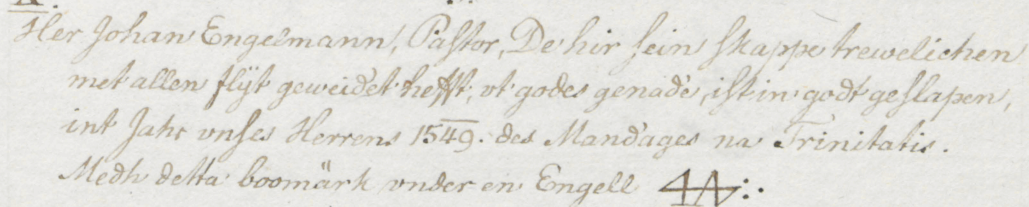 Her Johan Engelmann, Pastor, De hir sein skappe trewelichen
met allen flÿt geweidet hefft, vt godes genade, ist in godt geslapen,
int Jahr vnses Herrens 1549. des Mandages na Trinitatis.
Medh detta boomärk vnder en Engell